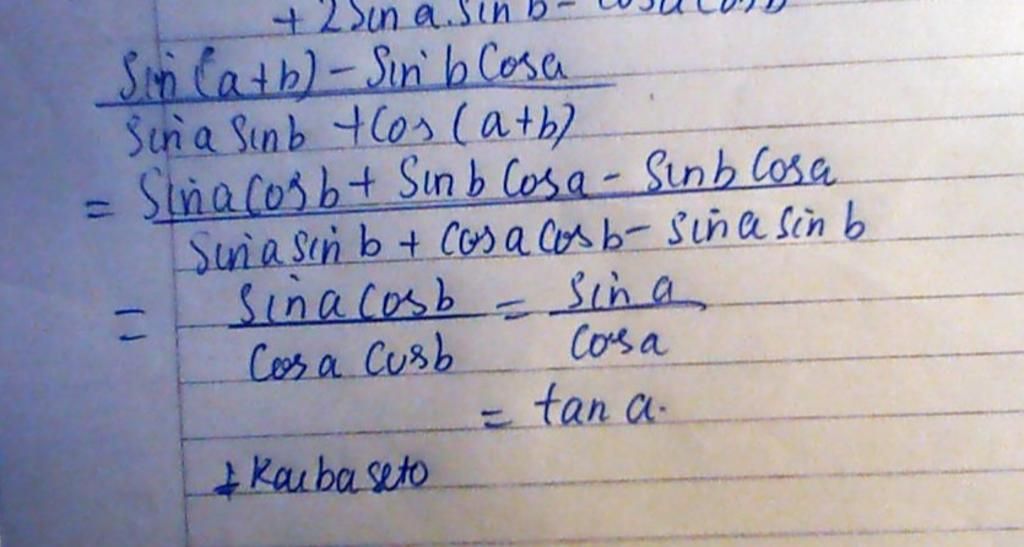 + 2 Sin a. Sin b - cosa cosb
Sin (a+b) - Sin b Cosa
Sin a Sin b + Cos (a+b)
= Sin a Cos b + Sin b Cosa - Sin b Cosa
Sin a sin b + Cos a Cos b - sin a sin b
= Sin a Cos b = Sin a
Cos a Cos b Cos a
= tan a.
+ Kaiba seto